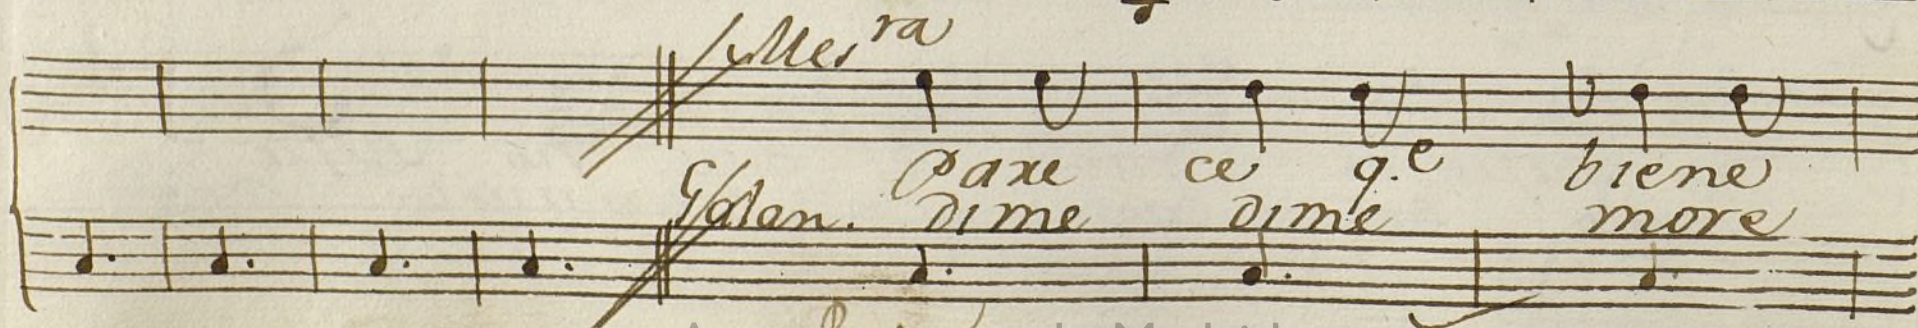 Mes ra
Pare ce q.e biene
Galan. dime dime more